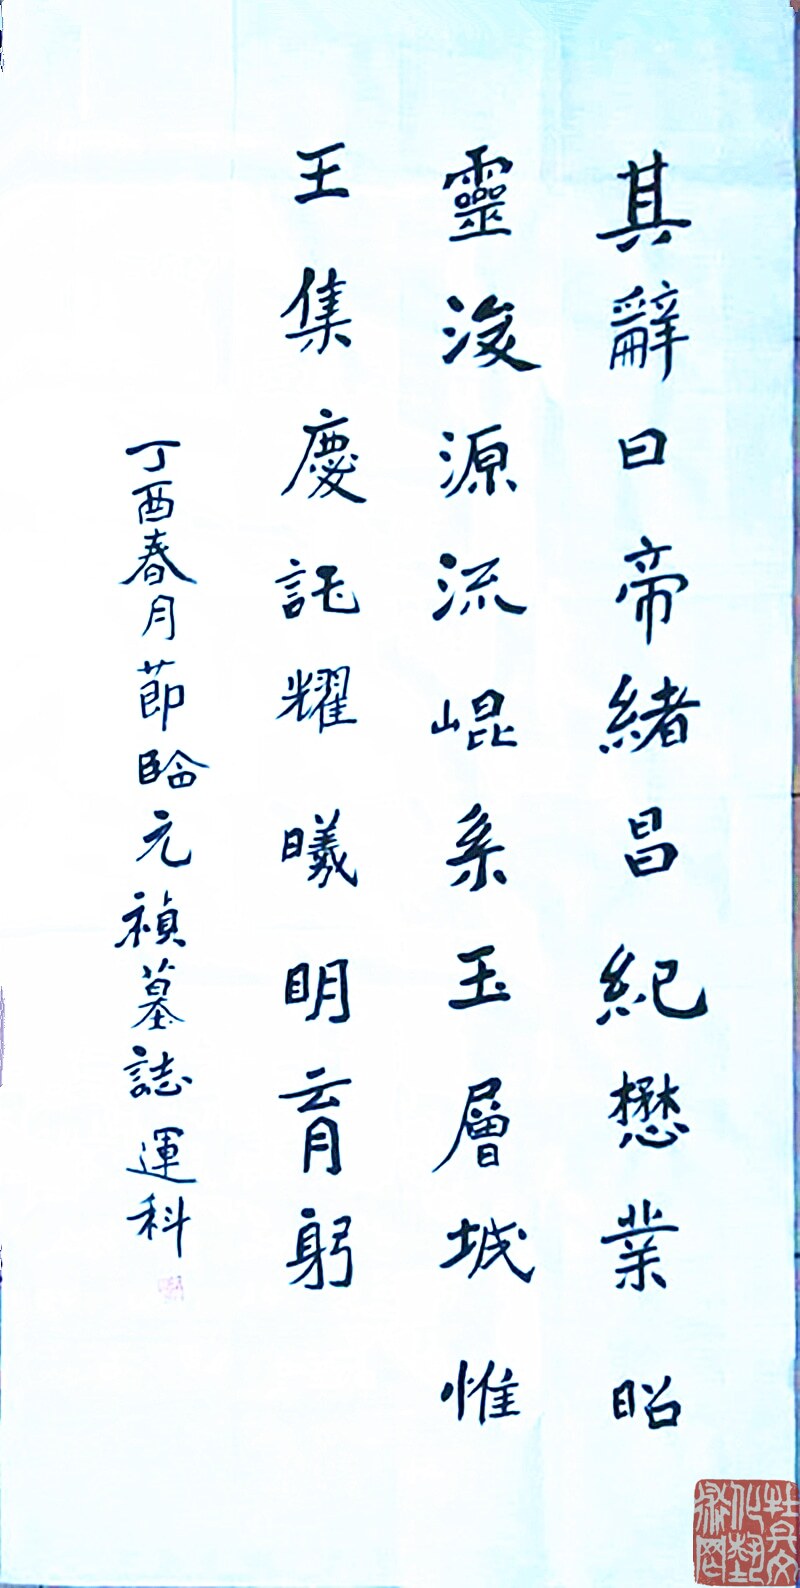 其辭曰帝緒昌紀懋業昭
靈浚源流崐系玉層城惟
王集慶託耀曦明育躬
丁酉春月節臨元禎墓誌運科